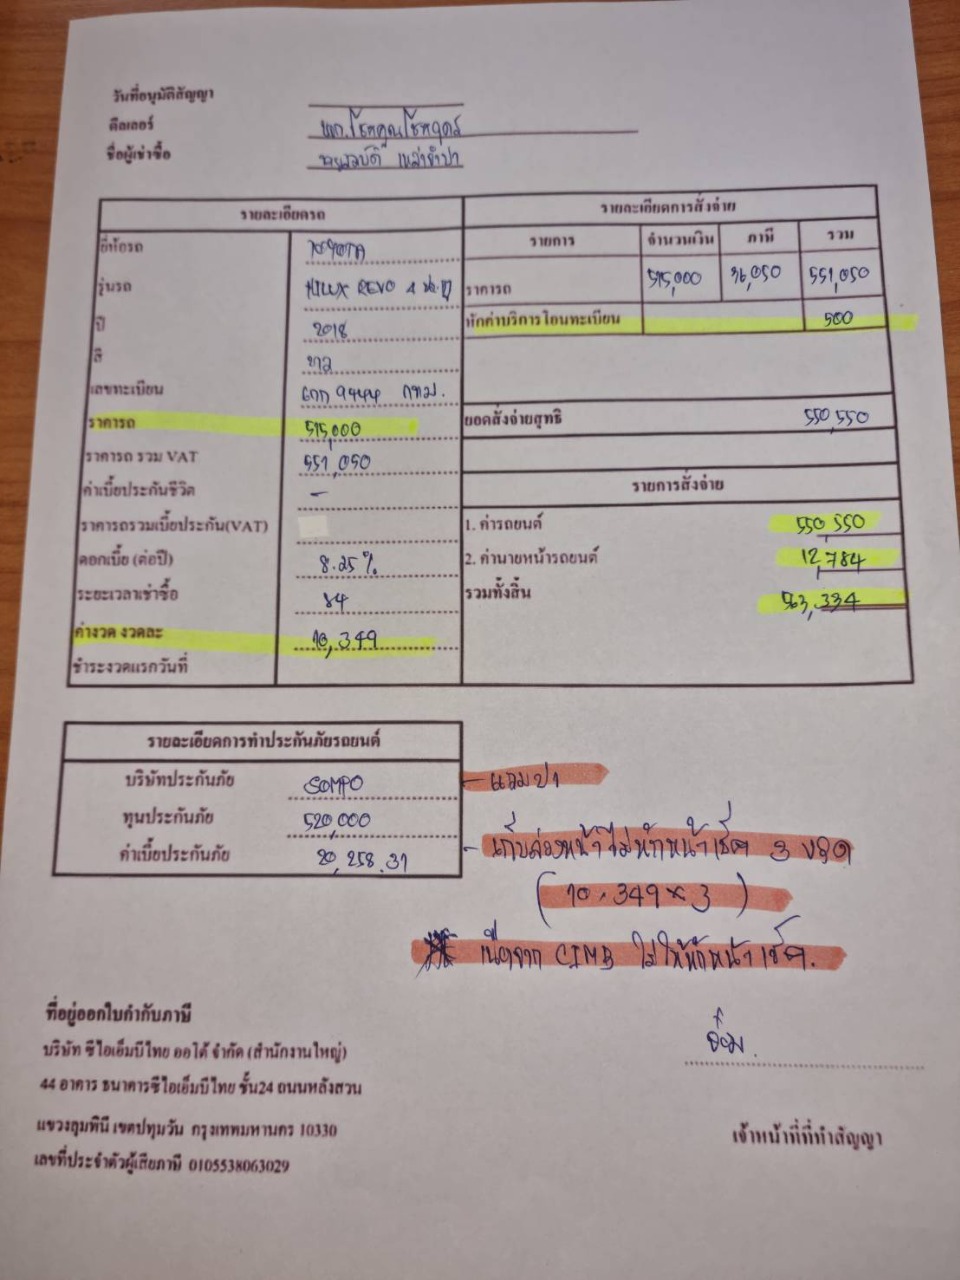 วันที่อนุมัติสัญญา
ดีลเลอร์ หจก.โชคคูณโชค
ชื่อผู้เช่าซื้อ
รายละเอียดรถ
ยี่ห้อรถ TOYOTA
รุ่นรถ HILUX REVO 4
ปี 2018
สี ขาว
เลขทะเบียน 9444 กทม.
ราคารถ 515,000
ราคารถ รวม VAT 551,050
ค่าเบี้ยประกันชีวิต -
ราคารถรวมเบี้ยประกัน(VAT)
ดอกเบี้ย (ต่อปี) 8.25%
ระยะเวลาเช่าซื้อ 84
ค่างวด งวดละ 10,349
ชำระงวดแรกวันที่
รายละเอียดการสั่งจ่าย
รายการ จำนวนเงิน ภาษี รวม
ราคารถ 515,000 36,050 551,050
หักค่าบริการโอนทะเบียน 500
ยอดสั่งจ่ายสุทธิ 550,550
รายการสั่งจ่าย
1. ค่ารถยนต์ 550,550
2. ค่านายหน้ารถยนต์ 12,784
รวมทั้งสิ้น 563,334
รายละเอียดการทำประกันภัยรถยนต์
บริษัทประกันภัย SOMPO
ทุนประกันภัย 520,000
ค่าเบี้ยประกันภัย 20,258.31
- แถมป1
- เก็บล่วงหน้าไม่หักหน้าเช็ค 3 งวด
(10,349 x 3)
เนื่องจาก CIMB ไม่ให้หักหน้าเช็ค.
เจ้าหน้าที่ที่ทำสัญญา
ที่อยู่ออกใบกำกับภาษี
บริษัท ซีไอเอ็มบีไทย ออโต้ จำกัด (สำนักงานใหญ่)
44 อาคาร ธนาคารซีไอเอ็มบีไทย ชั้น24 ถนนหลังสวน
แขวงลุมพินี เขตปทุมวัน กรุงเทพมหานคร 10330
เลขที่ประจำตัวผู้เสียภาษี 0105538063029